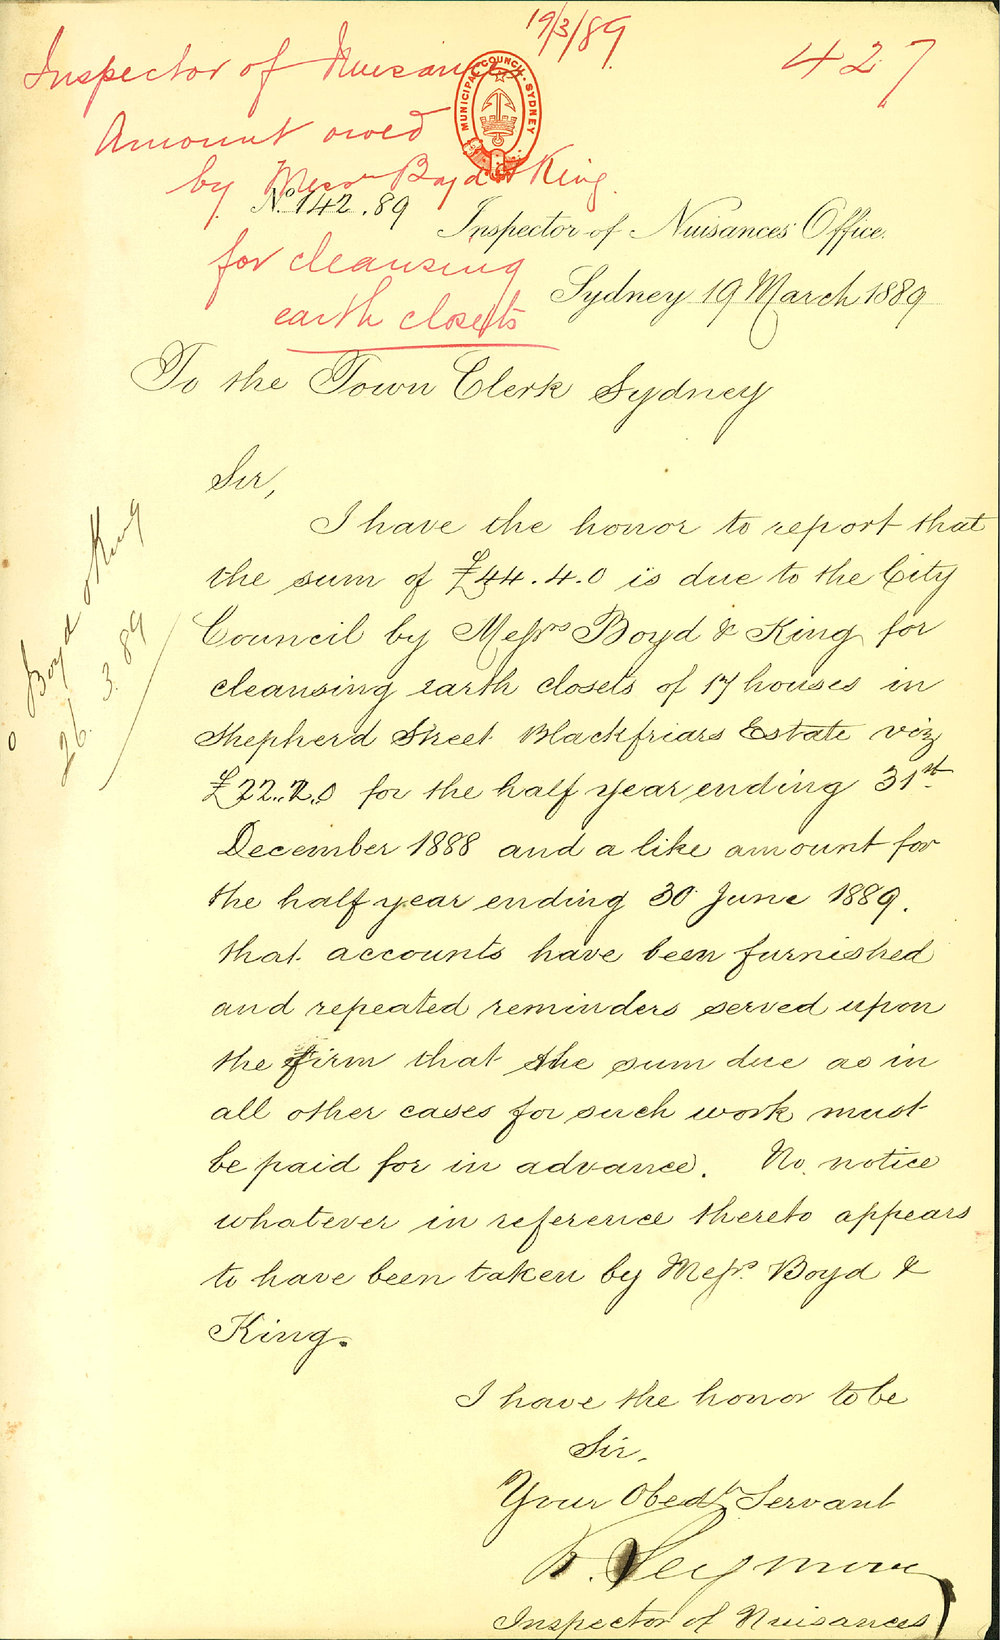 19/3/89
427
Inspector of Nuisances
MUNICIPAL COUNCIL · SYDNEY
Amount owed
by Messrs Boyd & King.
No. 142.89
Inspector of Nuisances Office.
for cleansing
earth closets
Sydney 19 March 1889
To the Town Clerk Sydney
Sir,
I have the honor to report that
the sum of £44.4.0 is due to the City
Council by Messrs Boyd & King for
cleansing earth closets of 17 houses in
Shepherd Street Blackfriars Estate viz
£22.2.0 for the half year ending 31st
December 1888 and a like amount for
the half year ending 30 June 1889.
that accounts have been furnished
and repeated reminders served upon
the firm that the sum due as in
all other cases for such work must
be paid for in advance. No notice
whatever in reference thereto appears
to have been taken by Messrs Boyd &
King.
I have the honor to be
Sir.
Your Obedt Servant
Seymour
Inspector of Nuisances
Boyd & King
26.3.89